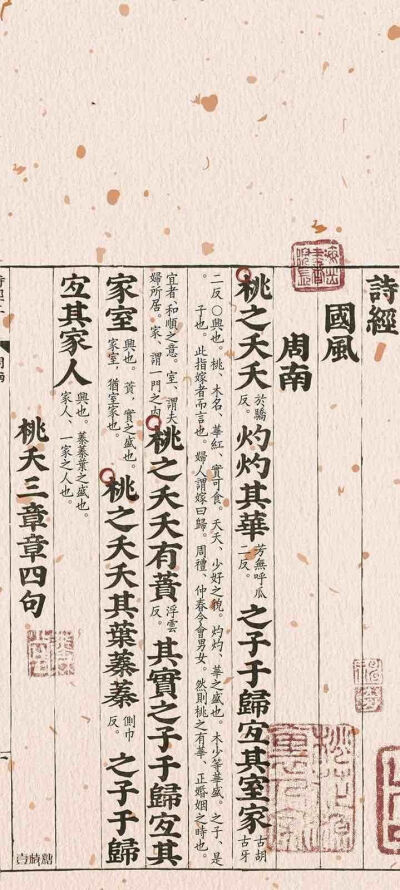 詩經
國風
周南
桃之夭夭於驕反。灼灼其華芳無呼瓜二反。之子于歸宜其室家古胡古牙
二反○興也。桃、木名、華紅、實可食。夭夭、少好之貌。灼灼、華之盛也。木少等華盛。之子、是
子也。此指嫁者而言也。婦人謂嫁曰歸。周禮、仲春令會男女。然則桃之有華、正婚姻之時也。
宜者、和順之意。室、謂夫
婦所居。家、謂一門之內
桃之夭夭有蕡浮雲反。其實之子于歸宜其
家室興也。蕡、實之盛也。家室、猶室家也。桃之夭夭其葉蓁蓁側巾反。之子于歸
宜其家人興也。蓁蓁葉之盛也。家人、一家之人也。
桃夭三章章四句